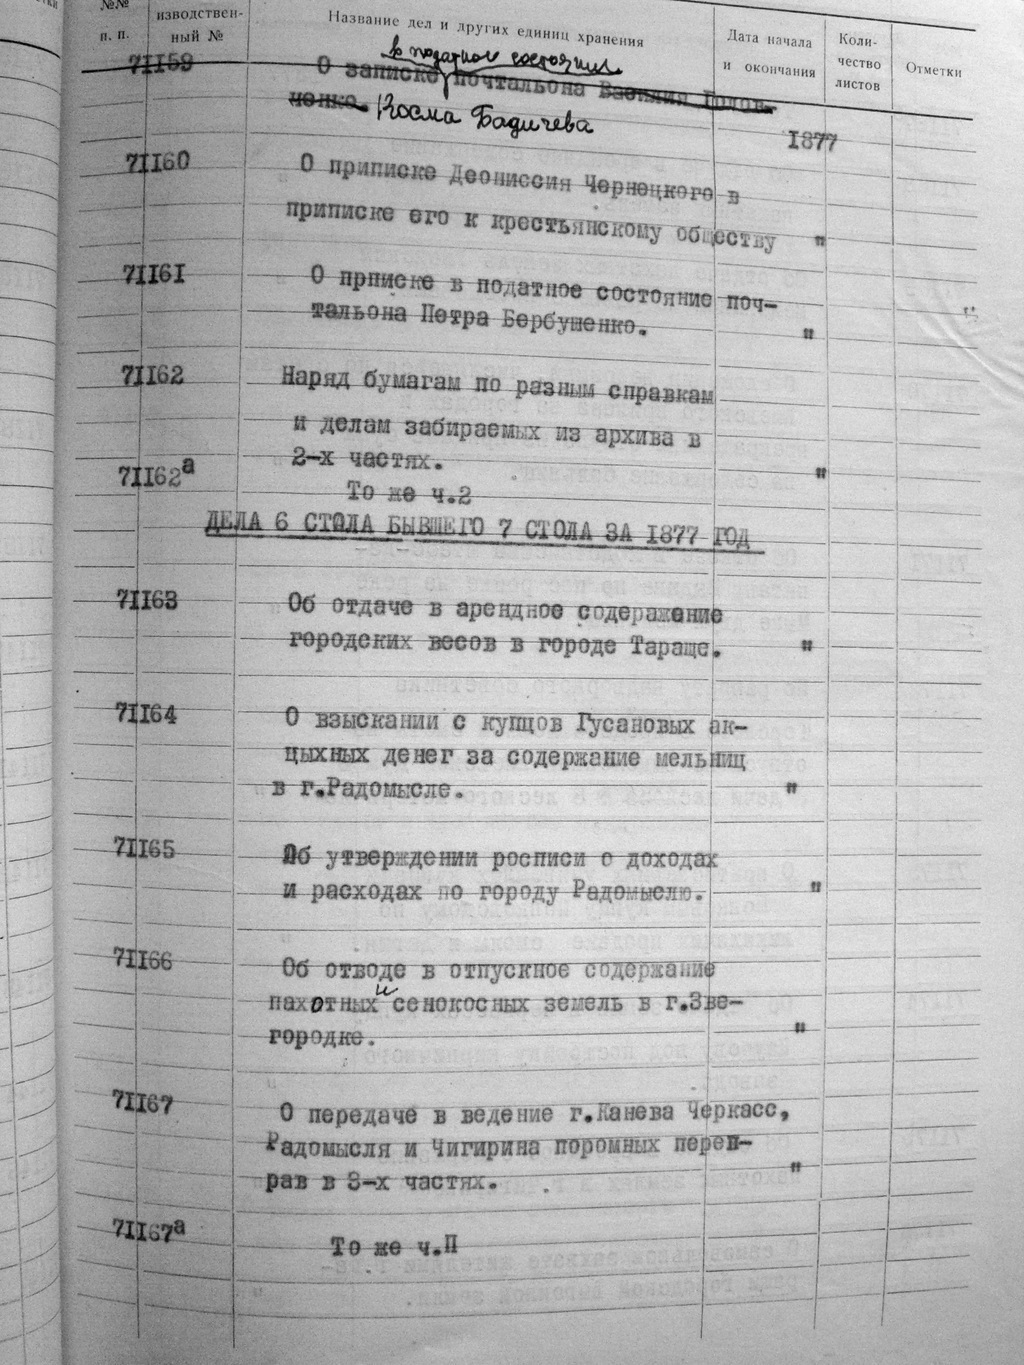 №№
п. п.
изводствен-
ный №
Название дел и других единиц хранения
Дата начала
и окончания
Коли-
чество
листов
Отметки
в податное состояние
71159 О записке почтальона Василия Голов-
ченко. Косма Бадичева
1877
71160 О приписке Деониссия Чернецкого в
приписке его к крестьянскому обществу "
71161 О прписке в податное состояние поч-
тальона Петра Бербушенко. "
71162 Наряд бумагам по разным справкам
и делам забираемых из архива в
2-х частях. "
71162а То же ч.2
ДЕЛА 6 СТОЛА БЫВШЕГО 7 СТОЛА ЗА 1877 ГОД
71163 Об отдаче в арендное содеражение
городских весов в городе Тараще. "
71164 О взыскании с купцов Гусановых ак-
цыхных денег за содержание мельниц
в г.Радомысле. "
71165 Об утверждении росписи о доходах
и расходах по городу Радомыслю. "
71166 Об отводе в отпускное содержание
пахотных и сенокосных земель в г.Зве-
городке. "
71167 О передаче в ведение г.Канева Черкасс,
Радомысля и Чигирина поромных переп-
рав в 3-х частях. "
71167а То же ч.П